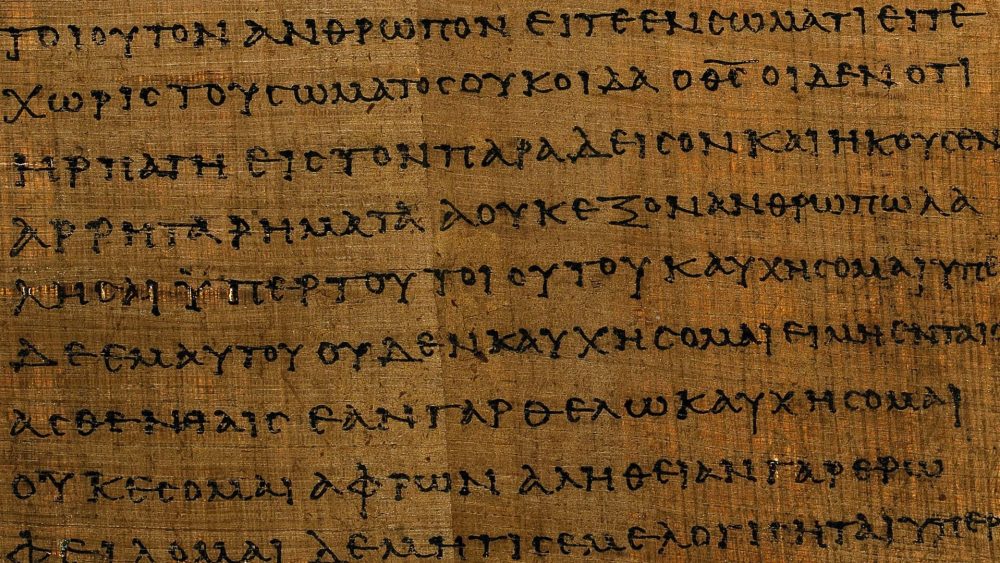 ΤΟΙΟΥΤΟΝ ΑΝΘΡΩΠΟΝ ΕΙΤΕ ΕΝ ϹΩΜΑΤΙ ΕΙΤΕ
ΧΩΡΙϹ ΤΟΥ ϹΩΜΑΤΟϹ ΟΥΚ ΟΙΔΑ Ο Θ̅Ϲ̅ ΟΙΔΕΝ ΟΤΙ
ΗΡΠΑΓΗ ΕΙϹ ΤΟΝ ΠΑΡΑΔΕΙϹΟΝ ΚΑΙ ΗΚΟΥϹΕΝ
ΑΡΡΗΤΑ ΡΗΜΑΤΑ Α ΟΥΚ ΕΞΟΝ ΑΝΘΡΩΠΩ ΛΑ
ΛΗϹΑΙ ΫΠΕΡ ΤΟΥ ΤΟΙΟΥΤΟΥ ΚΑΥΧΗϹΟΜΑΙ ΥΠΕ
ΔΕ ΕΜΑΥΤΟΥ ΟΥΔΕΝ ΚΑΥΧΗϹΟΜΑΙ ΕΙ ΜΗ ΕΝ ΤΑΙϹ
ΑϹΘΕΝΕΙΑΙϹ ΕΑΝ ΓΑΡ ΘΕΛΩ ΚΑΥΧΗϹΟΜΑΙ
ΟΥΚ ΕϹΟΜΑΙ ΑΦΡΩΝ ΑΛΗΘΕΙΑΝ ΓΑΡ ΕΡΩ
ΦΕΙΔΟΜΑΙ ΔΕ ΜΗ ΤΙϹ ΕΜΕ ΛΟΓΙϹΗΤΑΙ ΥΠΕΡ